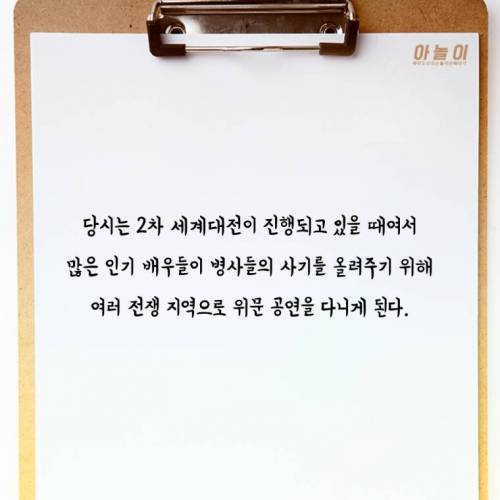 아놀이
당시는 2차 세계대전이 진행되고 있을 때여서
많은 인기 배우들이 병사들의 사기를 올려주기 위해
여러 전쟁 지역으로 위문 공연을 다니게 된다.